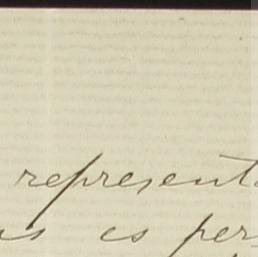 represent
as is per